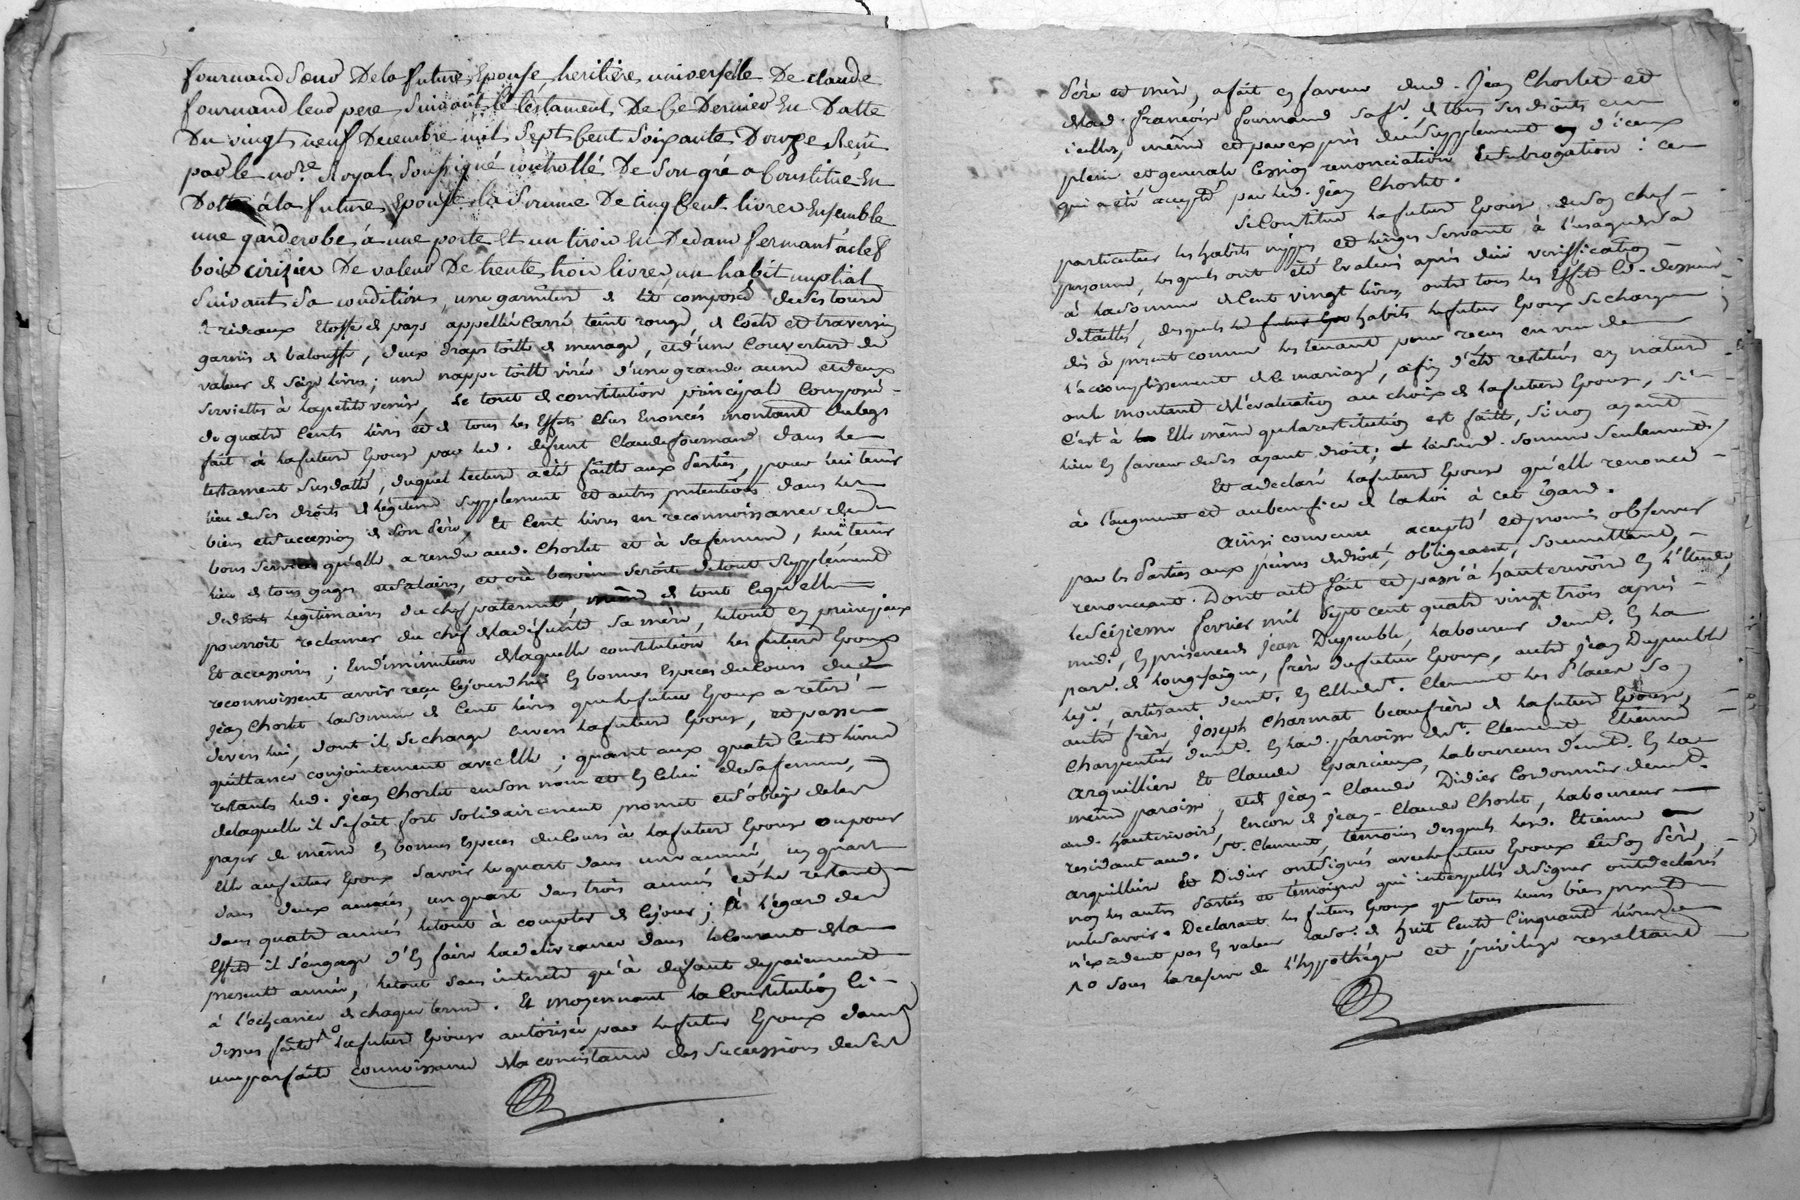 fournand Sœur De la future Epouse heritiére universélle De claude
fournand leur pere Suivant le téstament De Ce Dernier En Datte
Du vingt neuf Decembre mil Sept Cent Soixante Douze Reçu
par le no.re Royal Soussigné controllé De Son gré a Constitué En
Dotte á la future Epouse la Somme De Cinq Cent livres Ensemble
une garderobe á une porte Et un tiroir En Dedans fermant á clef
bois cirizier De valeur De trente trois livres, un habit nuptial
Suivant Sa condition, une garniture de lit composée de Ses tours
rideaux Etoffe de pays appellée Carré teint rouge, de Coëtre et traversin
garnis de balouffe, deux draps toille de menage, et d'une Couverture de
valeur de Seize livres; une nappe toille virée d'une grande aune et deux
Serviettes à la petite venise, Le tout de constitution principal Composé
de quatre Cents livres et de tous les Effets Sus Enoncés montant du legs
fait à la future Epouse par led. défunt Claude fournand dans le
testament Susdatté, duquel lecture a été faitte aux Parties, pour lui tenir
lieu de Ses droits de légitime Supplement et autres prétentions dans les
biens et Succession de Son Père, Et Cent livres en reconnoissance des
bons Services qu'elle a rendu aud. Chorlet et à Sa femme, lui tenir
lieu de tous gages et Salaires, et où besoin Seroit de tout Supplément
de droits legitimaires du chef paternel, même de tout Ce qu'elle
pourroit reclamer du chef de la défunte Sa mère, le tout en principaux
Et accessoires; En diminution de laquelle constitution les futurs Epoux
reconnoissent avoir reçu Cejourd'hui En bonnes Especes du Cours dud.
Jean Chorlet la Somme de Cent livres que le futur Epoux a retiré
devers lui, dont il Se charge envers la future Epouse, et passe
quittance conjointement avec Elle; quant aux quatre Cents livres
restants led. Jean Chorlet en Son nom et En Celui de Sa femme,
de laquelle il Se fait fort Solidairement promet et S'oblige de les
payer de même En bonnes Especes du Cours à la future Epouse ou pour
Elle au futur Epoux Savoir le quart dans une année, un quart
dans deux années, un quart dans trois années et le restant
dans quatre années le tout à compter de Ce jour; À l'égard des
Effets il S'engage d'En faire la délivrance dans le Courant de la
presente année, le tout Sans interets qu'à défaut de paiement
à l'échéance de chaque terme. Et moyennant la Constitution Ci-
dessus faitte la future Epouse autorisée par le futur Epoux dans
une parfaite connoissance de la consistance des Successions de Ses
Père et mère, a fait En faveur dud. Jean Chorlet et
de lad. françoise fournand Sa fe. de tous Ses droits en
icelles, même et par exprès du Supplement d'iceux
pleine et generale Cession renonciation Et Subrogation: ce
qui a été accepté par led. Jean Chorlet.
Se Constitue la future Epouse de Son chef
particulier les habits nippes et linges Servant à l'usage de Sa
personne, lesquels ont été Evalués après düe verification
à la Somme de Cent vingt livres, outre tous les Effets Ci-dessus
détaillés, desquels habits le futur Epoux Se charge
dès à present comme les tenant pour reçus en vue de
l'accomplissement de le mariage, afin d'être restitués En nature
ou le montant de l'évaluation au choix de la future Epouse, Si
C'est à Elle même que la restitution est faitte, Sinon ayant
lieu En faveur de Ses ayant droit; la Susd. Somme Seulement
Et a déclaré la future Epouse qu'elle renonce
à l'augment et au benefice de la loi à cet égard.
Ainsi convenu accepté et promis observer
par les Parties aux peines de droit, obligeant, Soumettant,
renonceant. Dont acte fait et passé à hauterivoire En l'Etude,
le Seizieme fevrier mil Sept cent quatre vingt trois après
midi, En présence de Jean Dupeuble, laboureur demt. En la
parr. de Longesaigne, frère du futur Epoux, autre Jean Dupeuble
artisant demt. En Celle de St. Clement les Places Son
autre frère, Joseph Charmat beaufrère de la future Epouse,
Charpentier demt. En lad. paroisse de St. Clement, Etienne
Arquilliere Et Claude Eparcieux, laboureurs demt. En la
même paroisse, et de Jean-Claude Didier Cordonnier demt.
aud. hauterivoire, encore de Jean-Claude Chorlet, laboureur
residant aud. St. Clement, témoins desquels led. Etienne
Arquilliere Et Didier ont Signés avec le futur Epoux et Son Père,
non les autres Parties et témoins qui interpellés de Signer ont déclarés
ne le Savoir. Declarant les futurs Epoux que tous leurs biens presents
n'excedent pas En valeur la So.e de huit Cents Cinquante livres
Sous la reserve de l'hypothéque et privilége resultant